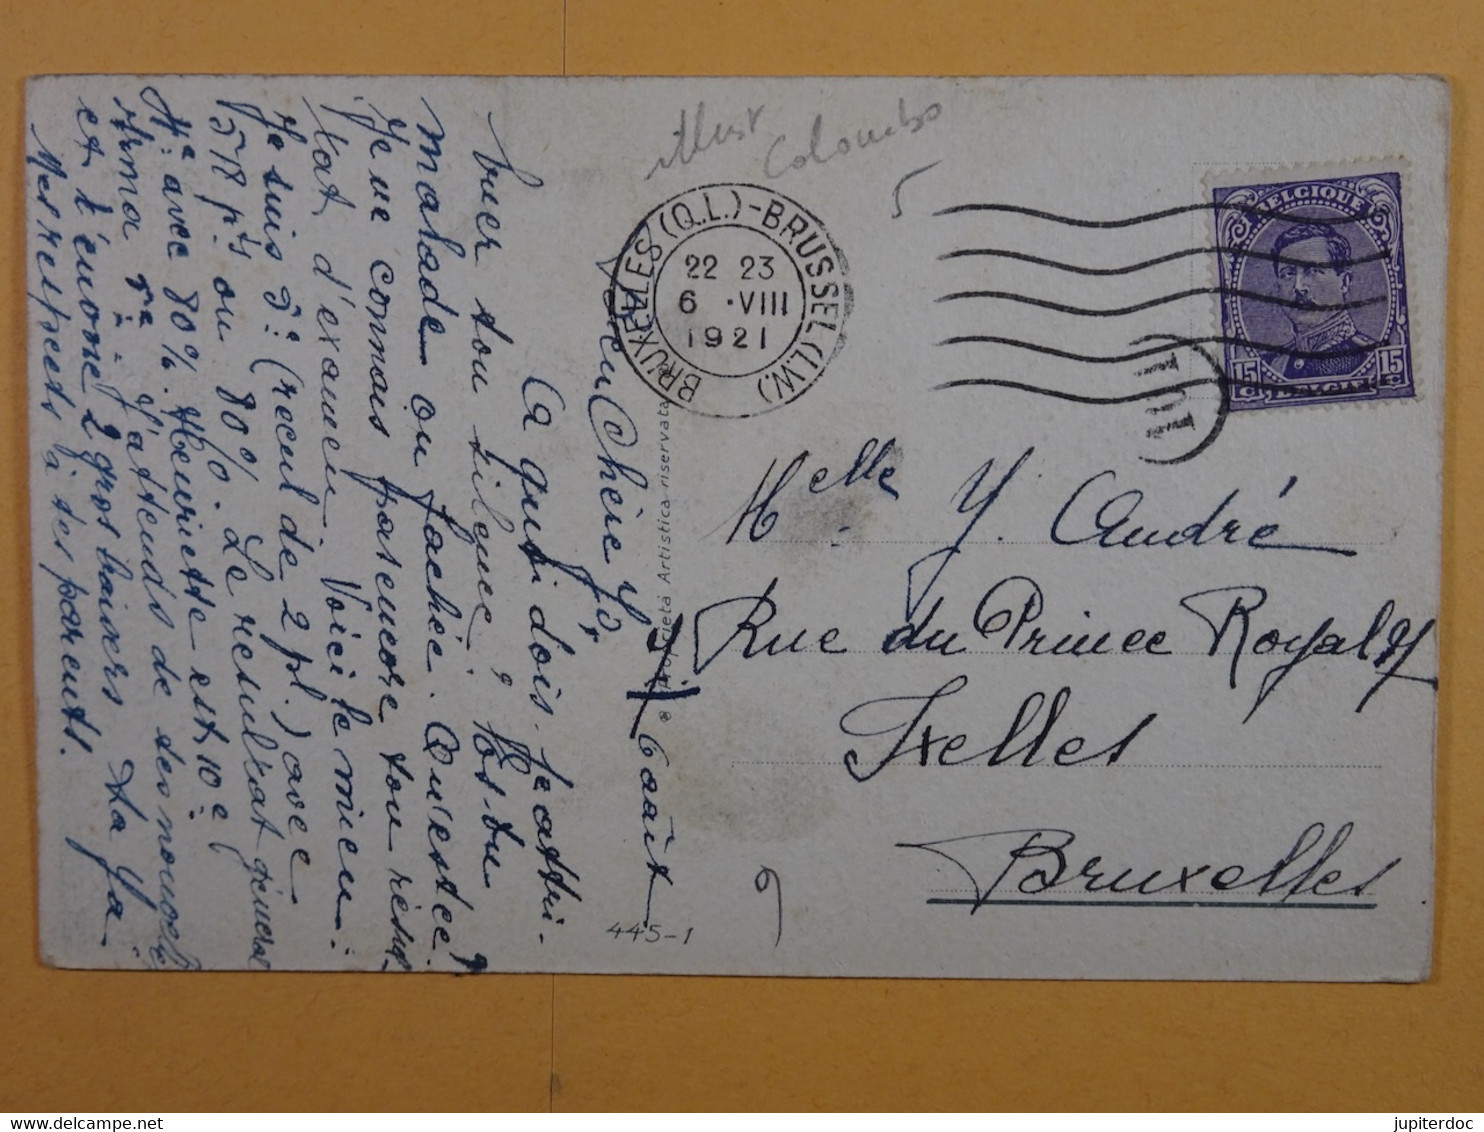 illustr
Colombo
5
BRUXELLES (Q.L.) - BRUSSEL (L.W.)
22 23
6 · VIII
1921
BELGIQUE
15 15
BELGIË
6 août
Bien Chère Yv.
A quoi dois-je attri-
buer ton silence? Es-tu
malade ou fachée. Qu'est ce?
Je ne connais pas encore ton résul-
tat d'examen. Voici le mien:
Je suis 3e (recul de 2 pl.) avec
pts ou 80%. Le résultat général
avec 80%. Henriette est 10e
Irma J'attends de tes nouvelles
et t'envoie 2 gros baisers. Ta Ya
Mes respects à tes parents.
® Proprietà Artistica riservata
445-1
Melle Y. André
Rue du Prince Royal 41
Ixelles
Bruxelles
9
jupiterdoc